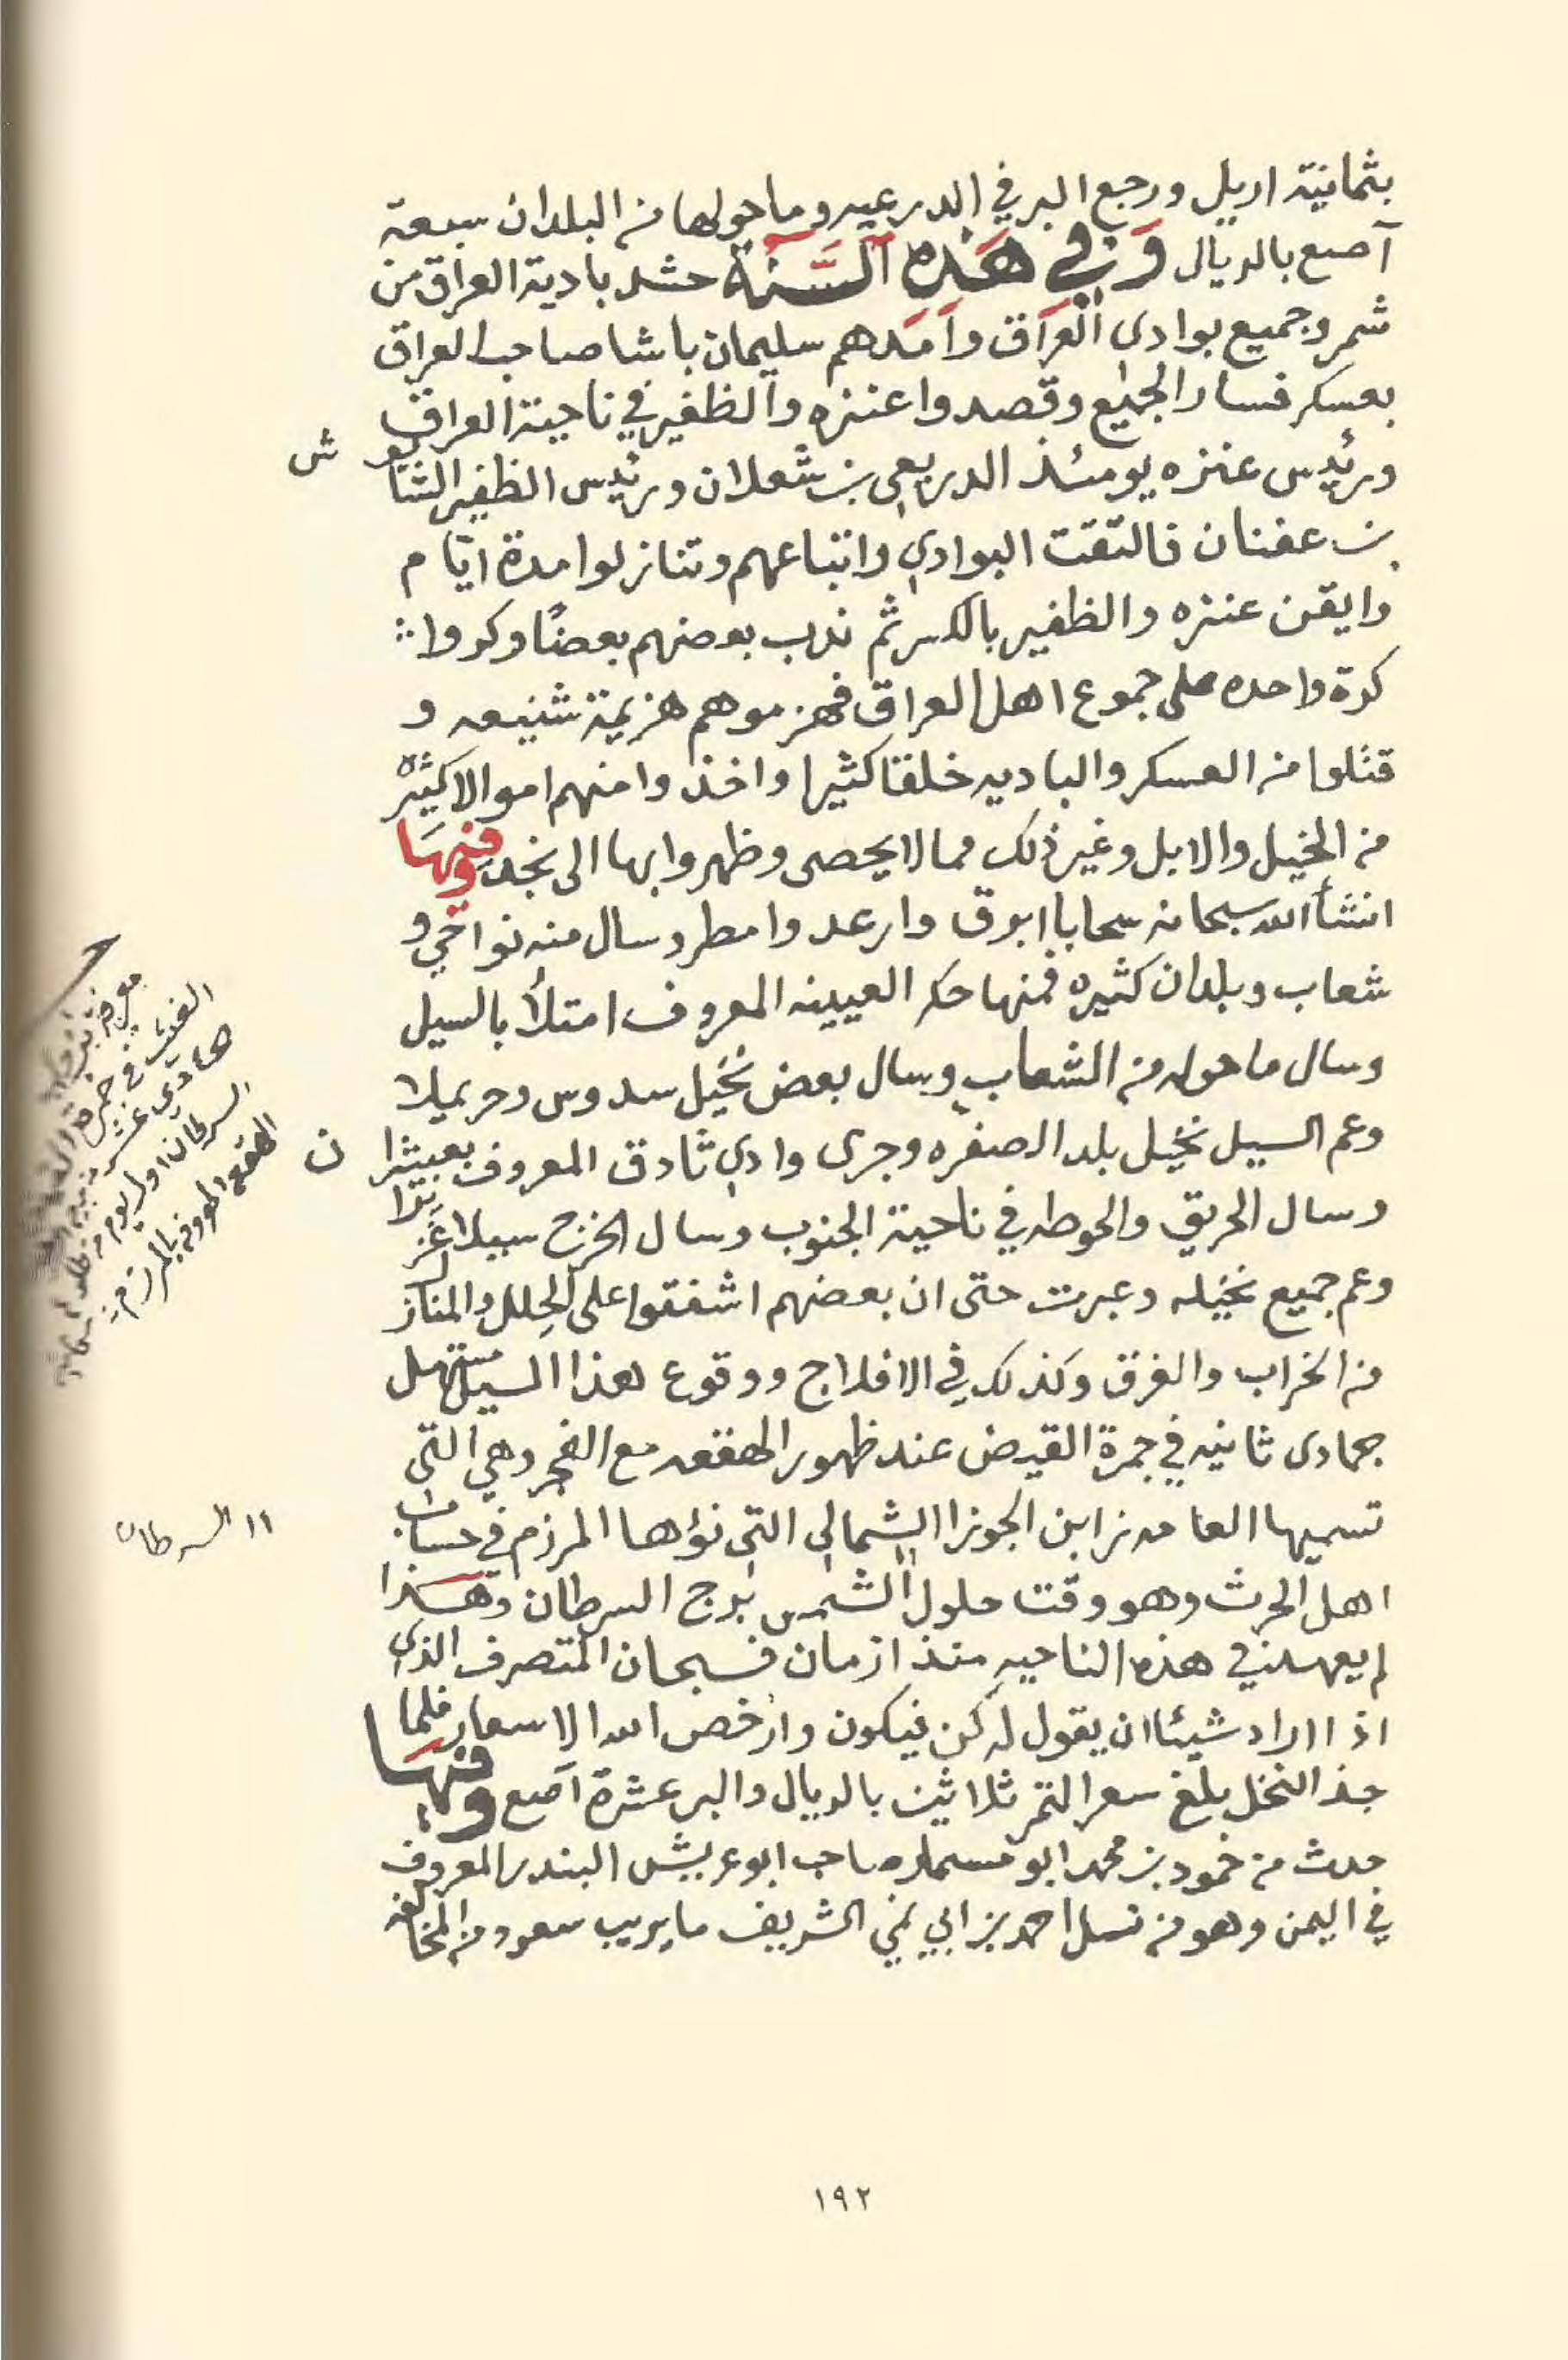 بثمانية اريل ورجع البر في الدرعيه وما حولها من البلدان سبعة
آصع بالريال وَفي هَذه السَّنَة حشد بادية العراق من
شمر وجميع بوادي العراق وامدهم سليمان باشا صاحب العراق
بعسكر فسار الجميع وقصدوا عنزه والظفير في ناحية العراق
ورئيس عنزه يومئذ الدريعي بن شعلان ورئيس الظفير الشايوش
بن عفنان فالتقت البوادي واتباعهم وتنازلوا مدة ايام
وايقن عنزه والظفير بالكسر ثم ندب بعضهم بعضًا وكروا
كرة واحده على جموع اهل العراق فهزموهم هزيمة شنيعه و
قتلوا من العسكر والباديه خلقا كثيرا واخذوا منهم اموالا كثيره
من الخيل والابل وغير ذلك مما لا يحصى وظهروا بها الى نجد وفيهَا
انشأ الله سبحانه سحابا ابرق وارعد وامطر وسال منه نواحي و
شعاب وبلدان كثيره فمنها حكر العيينه المعروف امتلأ بالسيل
وسال ما حوله من الشعاب وسال بعض نخيل سدوس وحريملا
وعم السيل نخيل بلد الصفره وجرى وادي ثادق المعروف بعبيثران
وسال الحريق والحوطه في ناحية الجنوب وسال الخرج سيلا غَزيرا
وعم جميع نخيله وعبرت حتى ان بعضهم اشفقوا على الحِلل والمنازل
من الخراب والغرق وكذلك في الافلاج ووقوع هذا السيل مستهل
جمادى ثانيه في جمرة القيض عند ظهور الهقعه مع الفجر وهي التي
تسميها العامه نزا ابن الجوزا الشمالي التي نؤها المرزم في حساب
اهل الحرث وهو وقت حلول الشمس برج السرطان وهذا
لم يعهد في هذه الناحيه منذ ازمان فسبحان المتصرف الذي
اذا اراد شيئا ان يقول له كن فيكون وارخص الله الاسعار فلما
جذ النخل بلغ سعر التمر ثلاثين بالريال والبر عشرة آصع وفيها
حدث من حمود بن محمد ابو مسمار صاحب ابو عريش البندر المعروف
في اليمن وهو من نسل احمد بن ابي نمي الشريف ما يريب سعود من المخالفه
هادي عشر
السرطان اول يوم من
الهقعه المعروف بالمرزم
١١ السرطان
١٩٢